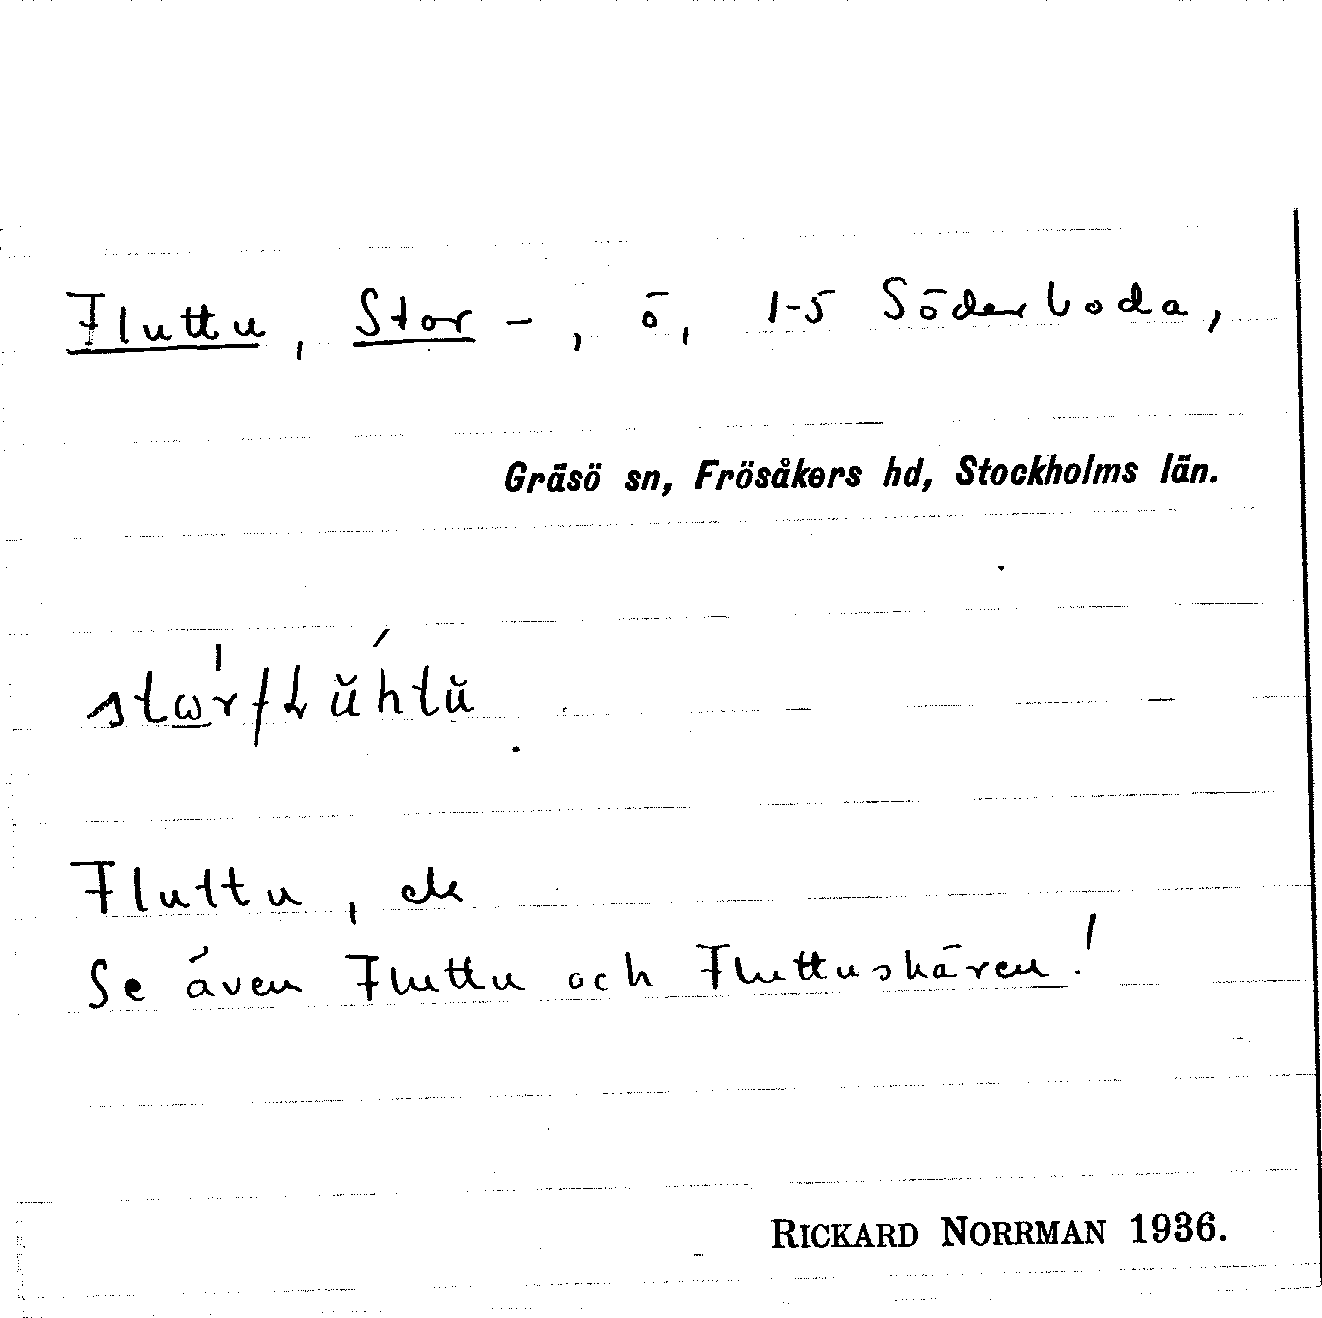 Fluttu, Stor-, ö, 1-5 Söderboda,
Gräsö sn, Frösåkers hd, Stockholms län.
Fluttu, ek
Se även Fluttu och Fluttuskären!
RICKARD NORRMAN 1936.